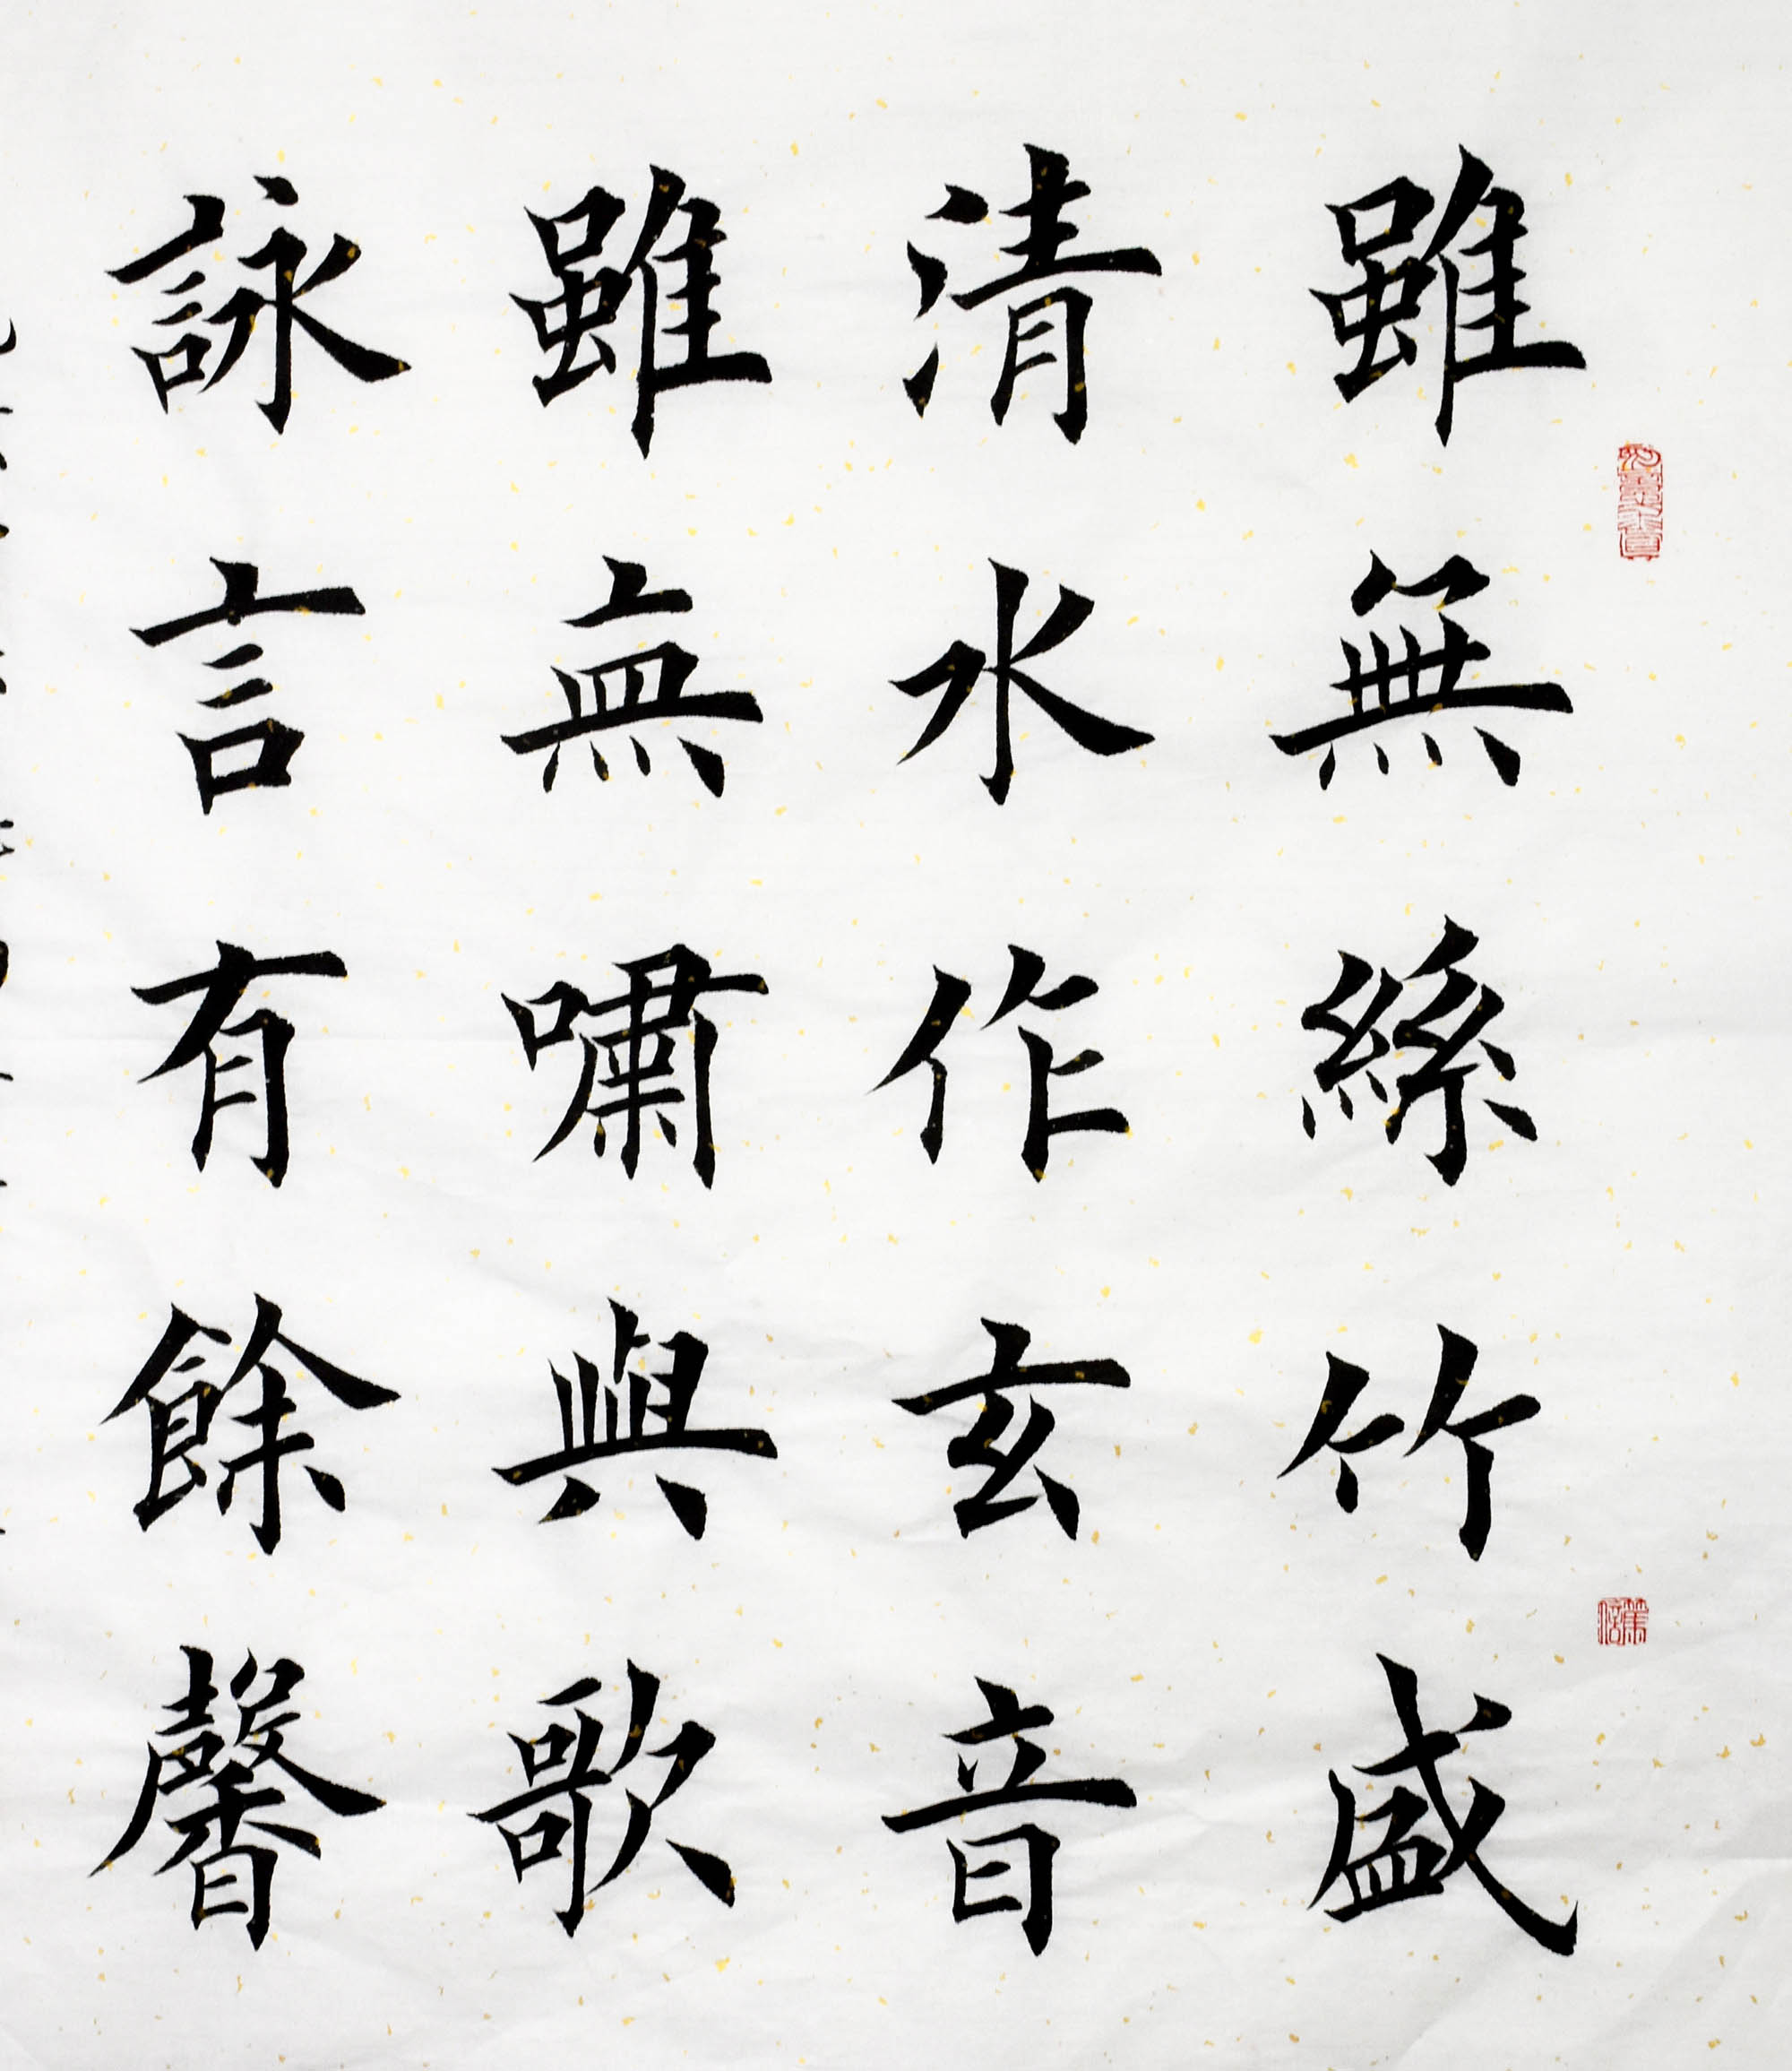 雖無絲竹盛
清水作玄音
雖無嘯與歌
詠言有餘馨